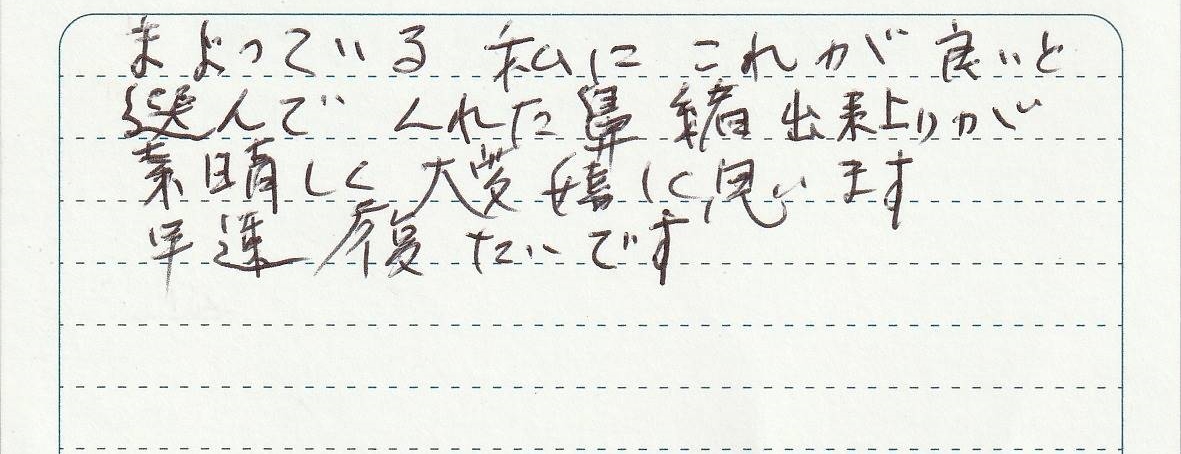 まよっている 私に これが 良いと
選んで くれた 鼻緒 出来上りが
素晴しく 大変 嬉しく思います
早速 履きたいです